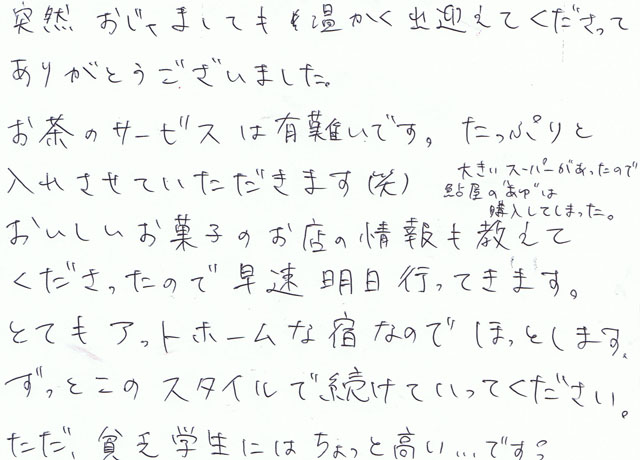 突然 おじゃましても温かく出迎えてくださって
ありがとうございました。
お茶のサービスは有難いです。たっぷりと
入れさせていただきます(笑)
大きいスーパーがあったので
鮎屋の"あゆ"は
購入してしまった。
おいしいお菓子のお店の情報も教えて
くださったので早速明日行ってきます。
とてもアットホームな宿なのでほっとします。
ずっとこのスタイルで続けていってください。
ただ、貧乏学生にはちょっと高い…です。